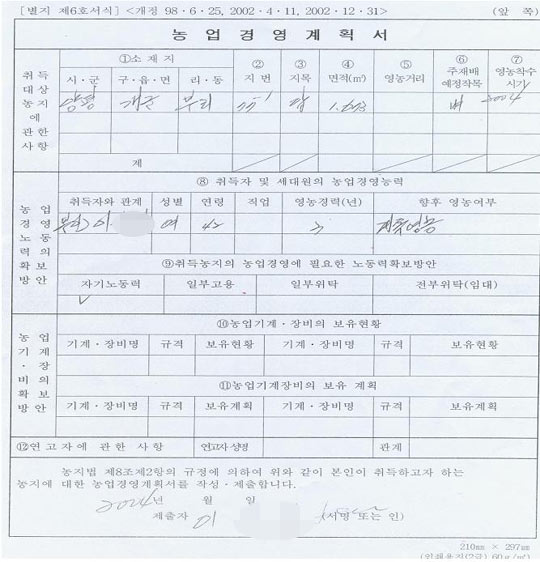 [별지 제6호서식] <개정 98·6·25, 2002·4·11, 2002·12·31> (앞 쪽)
농 업 경 영 계 획 서
취득 대상 농지 에 관한 사항
①소 재 지 ② 지 번 ③ 지목 ④ 면적(㎡) ⑤ 영농거리 ⑥ 주재배 예정작목 ⑦ 영농착수 시기
시·군 구·읍·면 리·동
양평 개군 부리 답 벼
계
농 업 경 영 노 동 력 의 확 보 방 안
⑧ 취득자 및 세대원의 농업경영능력
취득자와 관계 성별 연령 직업 영농경력(년) 향후 영농여부
이 여 42 3 계속영농
⑨취득농지의 농업경영에 필요한 노동력확보방안
자기노동력 일부고용 일부위탁 전부위탁(임대)
✓
농 업 기 계 · 장 비 의 확 보 방 안
⑩농업기계·장비의 보유현황
기계·장비명 규격 보유현황 기계·장비명 규격 보유현황
⑪농업기계장비의 보유 계획
기계·장비명 규격 보유계획 기계·장비명 규격 보유계획
⑫연 고 자 에 관 한 사 항 연고자성명 관계
농지법 제8조제2항의 규정에 의하여 위와 같이 본인이 취득하고자 하는
농지에 대한 농업경영계획서를 작성·제출합니다.
2024년 월 일
제출자 이 (서명 또는 인)
210㎜ × 297㎜
(인쇄용지(2급) 60g/㎡)